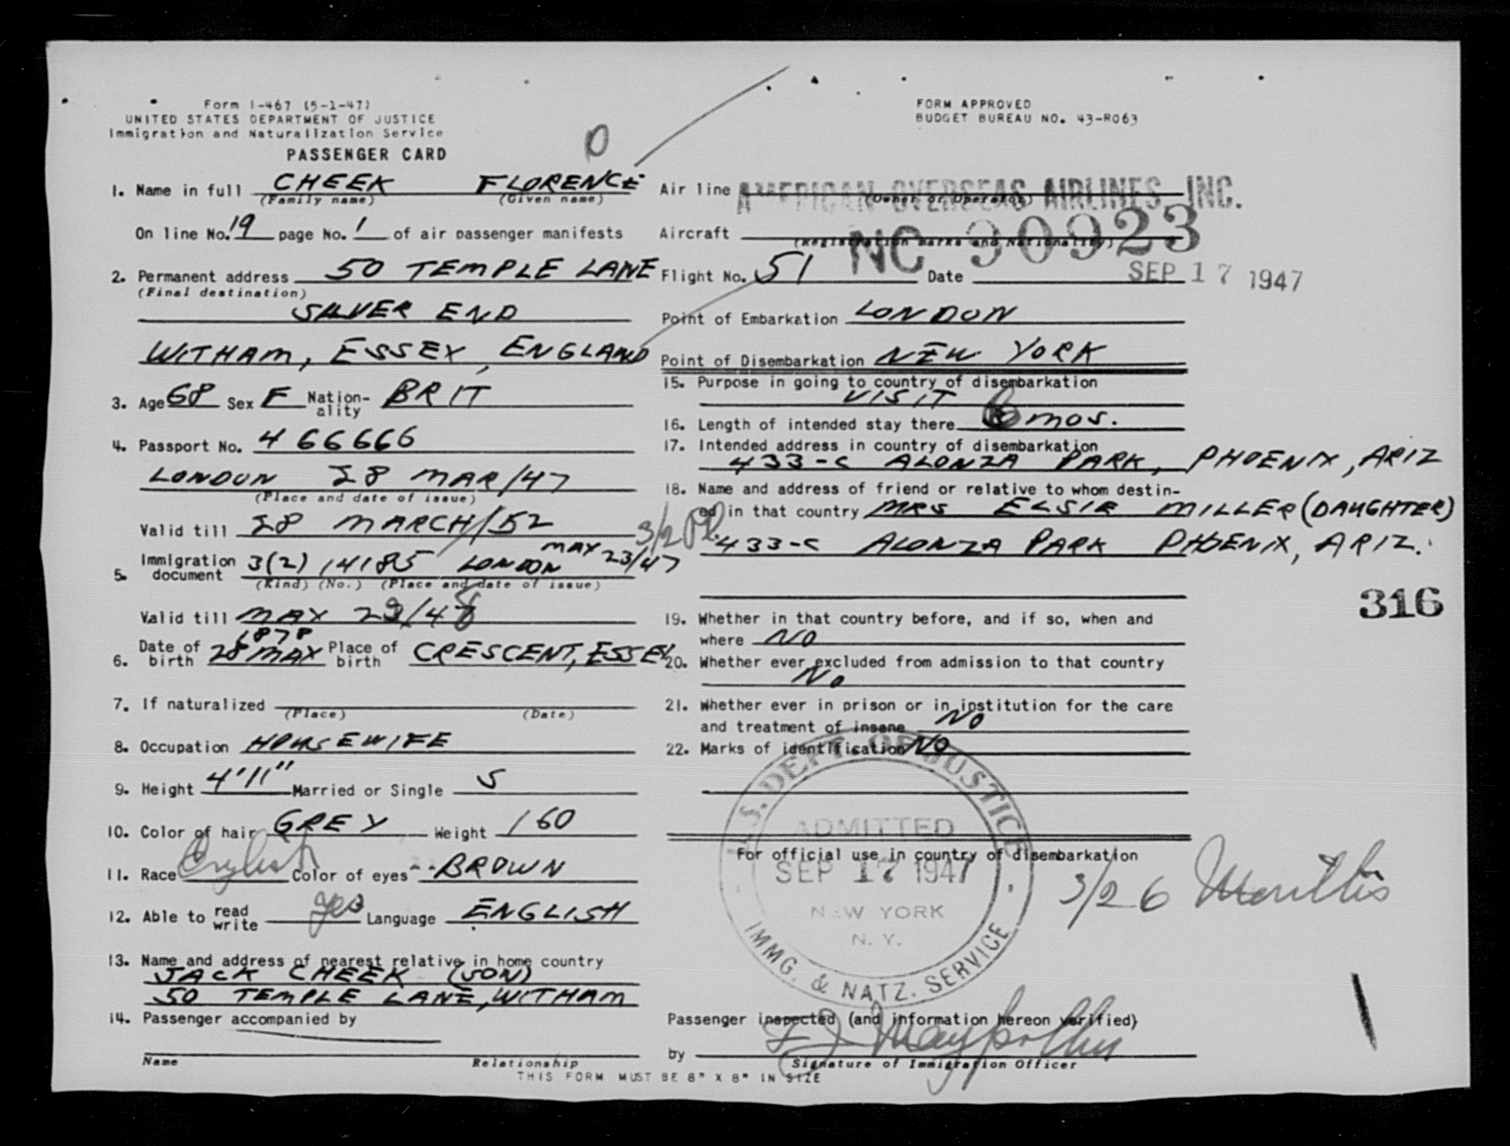 Form I-467 (5-1-47)
UNITED STATES DEPARTMENT OF JUSTICE
Immigration and Naturalization Service
PASSENGER CARD
FORM APPROVED
BUDGET BUREAU NO. 43-R063
0
1. Name in full CHEEK FLORENCE
(Family name) (Given name)
On line No. 19 page No. 1 of air passenger manifests
2. Permanent address 50 TEMPLE LANE
(Final destination)
SILVER END
WITHAM, ESSEX, ENGLAND
3. Age 68 Sex F Nation-ality BRIT
4. Passport No. 466666
LONDON 28 MAR/47
(Place and date of issue)
Valid till 28 MARCH/52
5. Immigration document 3(2) 14185 LONDON MAY 23/47
(Kind) (No.) (Place and date of issue)
Valid till MAY 23/48
6. Date of birth 28 MAY 1878 Place of birth CRESCENT, ESSEX
7. If naturalized
(Place) (Date)
8. Occupation HOUSEWIFE
9. Height 4'11" Married or Single S
10. Color of hair GREY Weight 160
11. Race English Color of eyes BROWN
12. Able to read write yes Language ENGLISH
13. Name and address of nearest relative in home country
JACK CHEEK (SON)
50 TEMPLE LANE, WITHAM
14. Passenger accompanied by
Name Relationship
THIS FORM MUST BE 8" X 8" IN SIZE
Air line AMERICAN OVERSEAS AIRLINES, INC.
(Owner or Operator)
Aircraft NC 90923
(Registration marks and Nationality)
Flight No. 51 Date SEP 17 1947
Point of Embarkation LONDON
Point of Disembarkation NEW YORK
15. Purpose in going to country of disembarkation
VISIT
16. Length of intended stay there 6 mos.
17. Intended address in country of disembarkation
433-C ALONZA PARK, PHOENIX, ARIZ
18. Name and address of friend or relative to whom destin-
ed in that country MRS ELSIE MILLER (DAUGHTER)
3/2
433-C ALONZA PARK PHOENIX, ARIZ.
316
19. Whether in that country before, and if so, when and
where NO
20. Whether ever excluded from admission to that country
No
21. Whether ever in prison or in institution for the care
and treatment of insane NO
22. Marks of identification NO
U.S. DEPT. OF JUSTICE
ADMITTED
For official use in country of disembarkation
SEP 17 1947
NEW YORK
N. Y.
IMMG. & NATZ. SERVICE
3/2 6 Months
Passenger inspected (and information hereon verified)
by
Signature of Immigration Officer